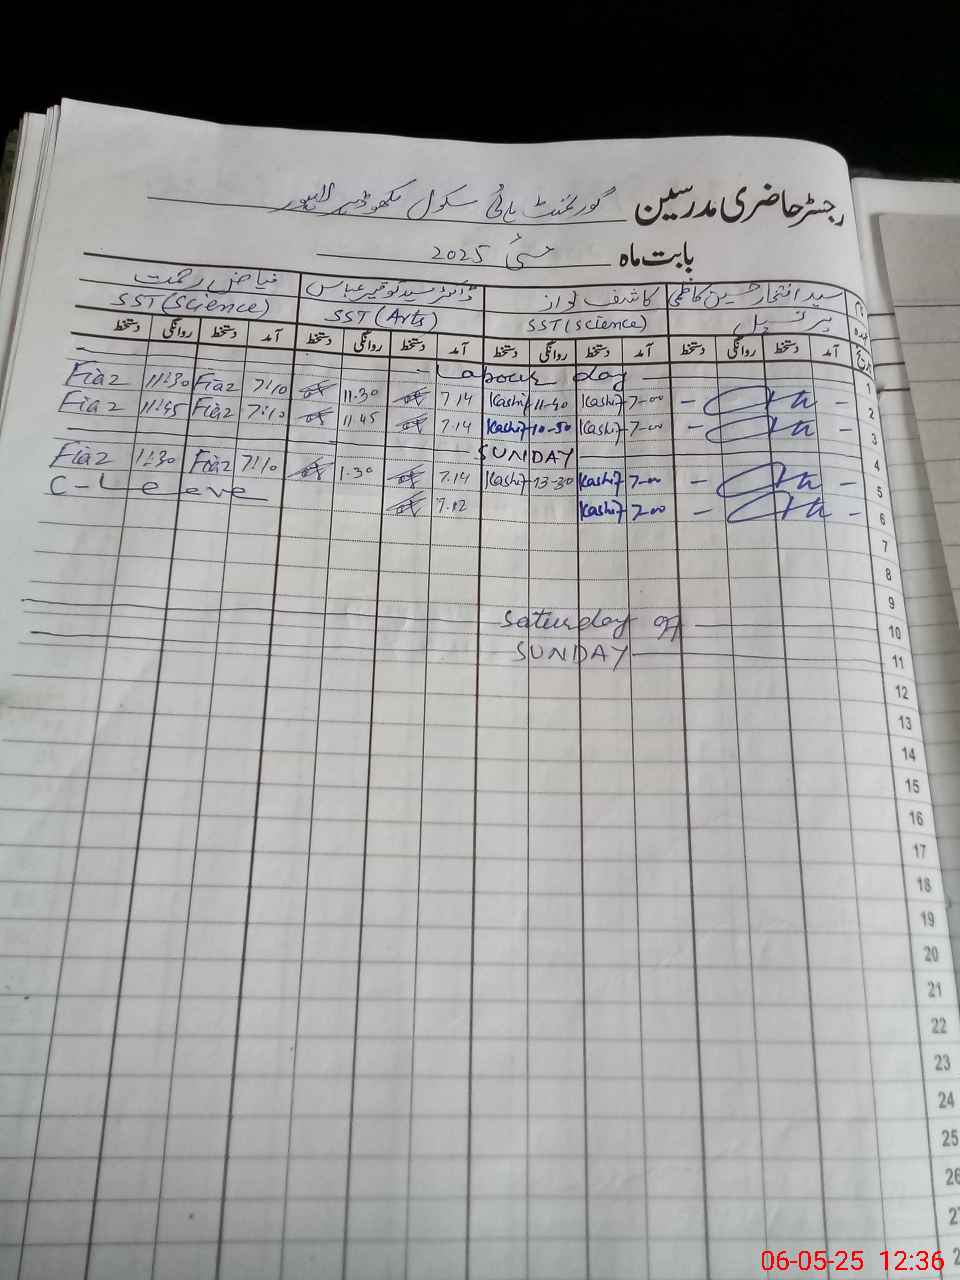 رجسٹر حاضری مدرسین گورنمنٹ ہائی سکول لاہور
بابت ماہ مئی 2025
سید افتخار حسین کاظمی کاشف نواز ڈاکٹر سید توقیر عباس فیاض رحمت
عہدہ پرنسپل SST (Science) SST (Arts) SST (Science)
تاریخ آمد دستخط روانگی دستخط آمد دستخط روانگی دستخط آمد دستخط روانگی دستخط آمد دستخط روانگی دستخط
Labour day 1
Fiaz 11:30 Fiaz 7:10 11.30 7.14 Kashif 11-40 Kashif 7-00 - - 2
Fiaz 11:45 Fiaz 7:10 11.45 7.14 Kashif 10-50 Kashif 7-00 - - 3
SUNDAY 4
Fiaz 1:30 Fiaz 7:10 1.30 7.14 Kashif 13-30 Kashif 7-00 - - 5
C-Leeve 7.12 Kashif 7-00 - - 6
7
8
9
Saturday off 10
SUNDAY 11
12
13
14
15
16
17
18
19
20
21
22
23
24
25
26
2
2
06-05-25 12:36